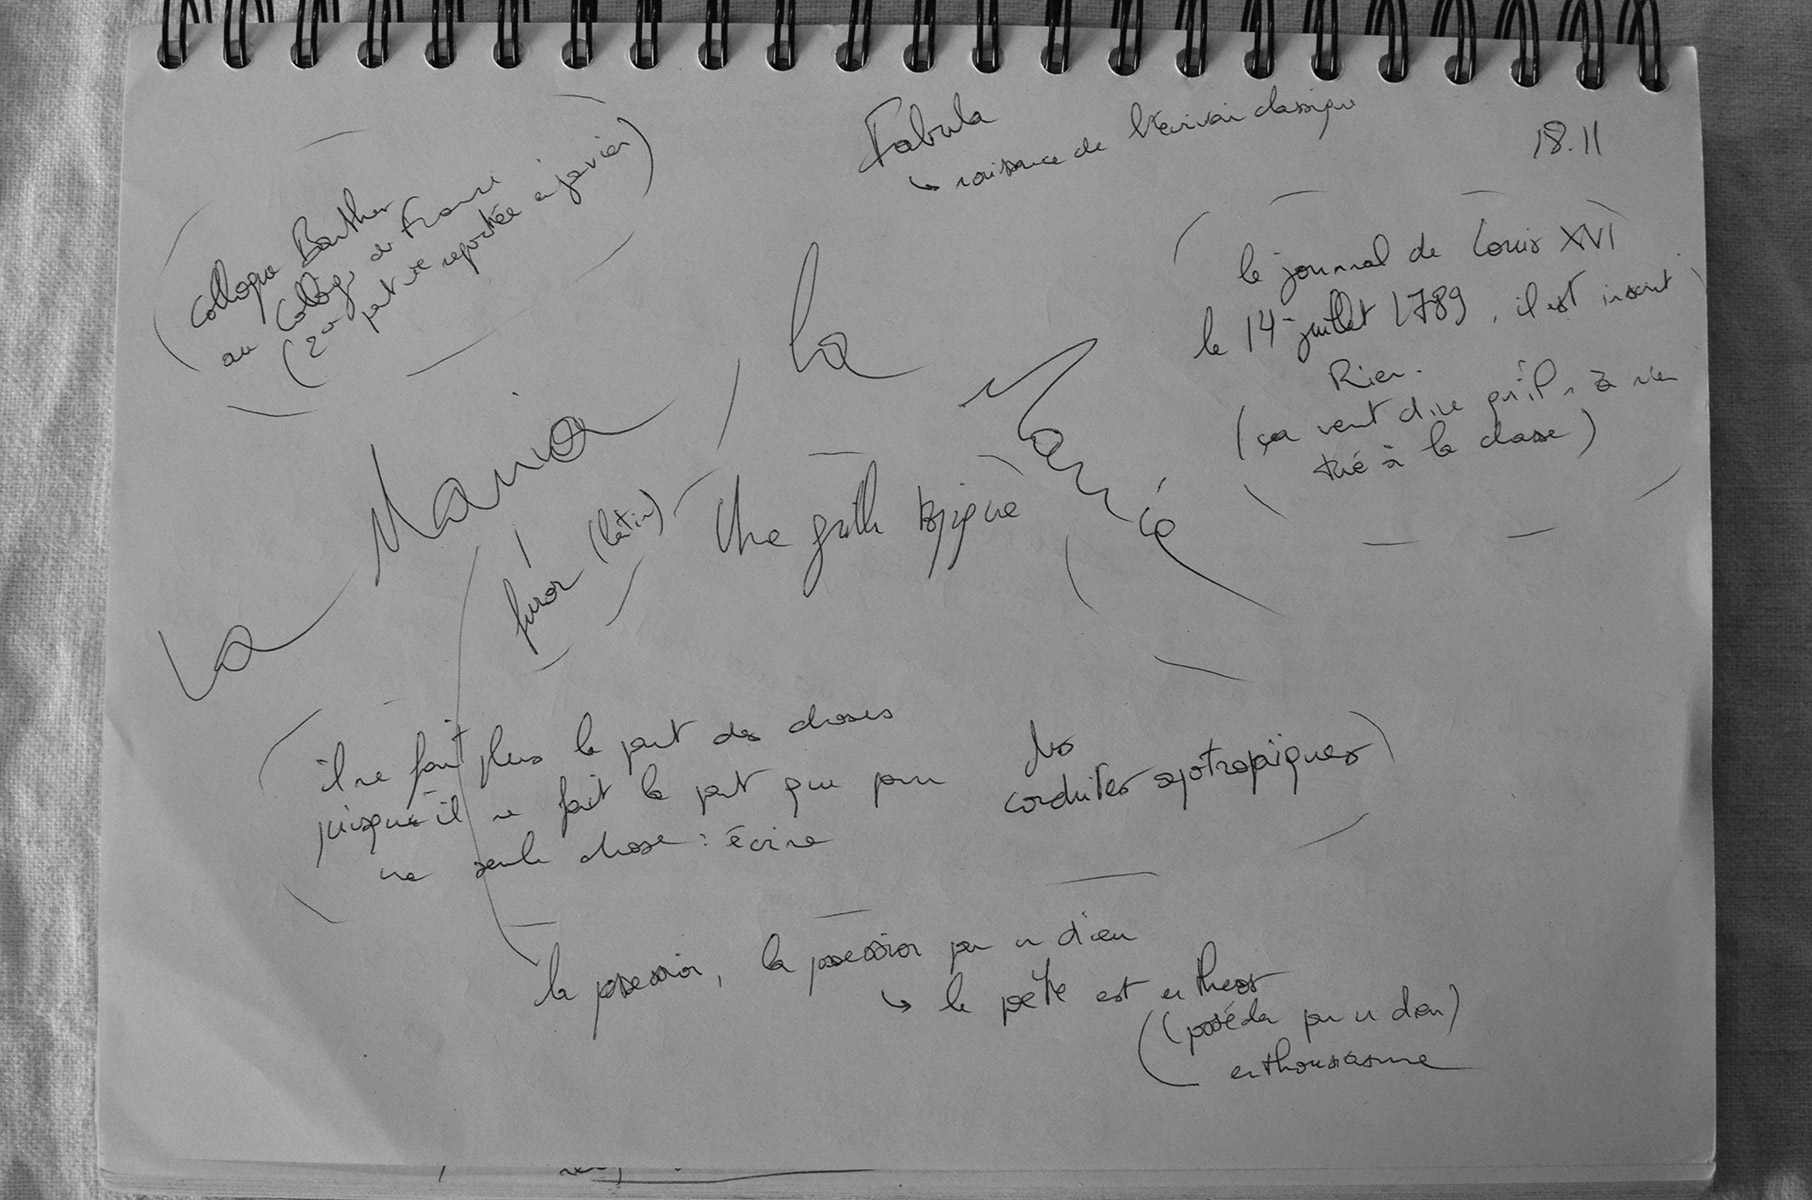 Fabula
↳ naissance de l'écrivain classique
18.11
Colloque Barthes
au Collège de France
(2e part été reportée en janvier)
le journal de Louis XVI
le 14 juillet 1789, il est inscrit
Rien.
(ça veut dire qu'il n'a rien
tué à la chasse)
La Mania, la Manie
furor (latin)
Une grille topique
il ne fait plus la part des choses
puisqu'il ne fait la part que pour
une seule chose : écrire
des
conduites apotropaïques
la possession, la possession par un dieu
↳ le poète est entheos
(possédé par un dieu)
enthousiasme